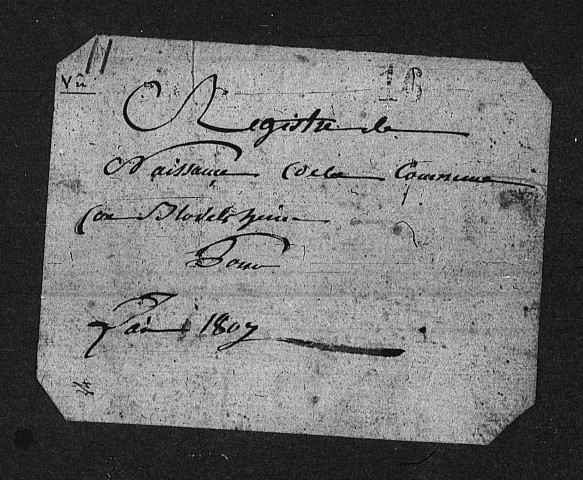 11
Vû
16
Registre de
Naissance de la Commune
de Blodelsheim
Pour
L'an 1807